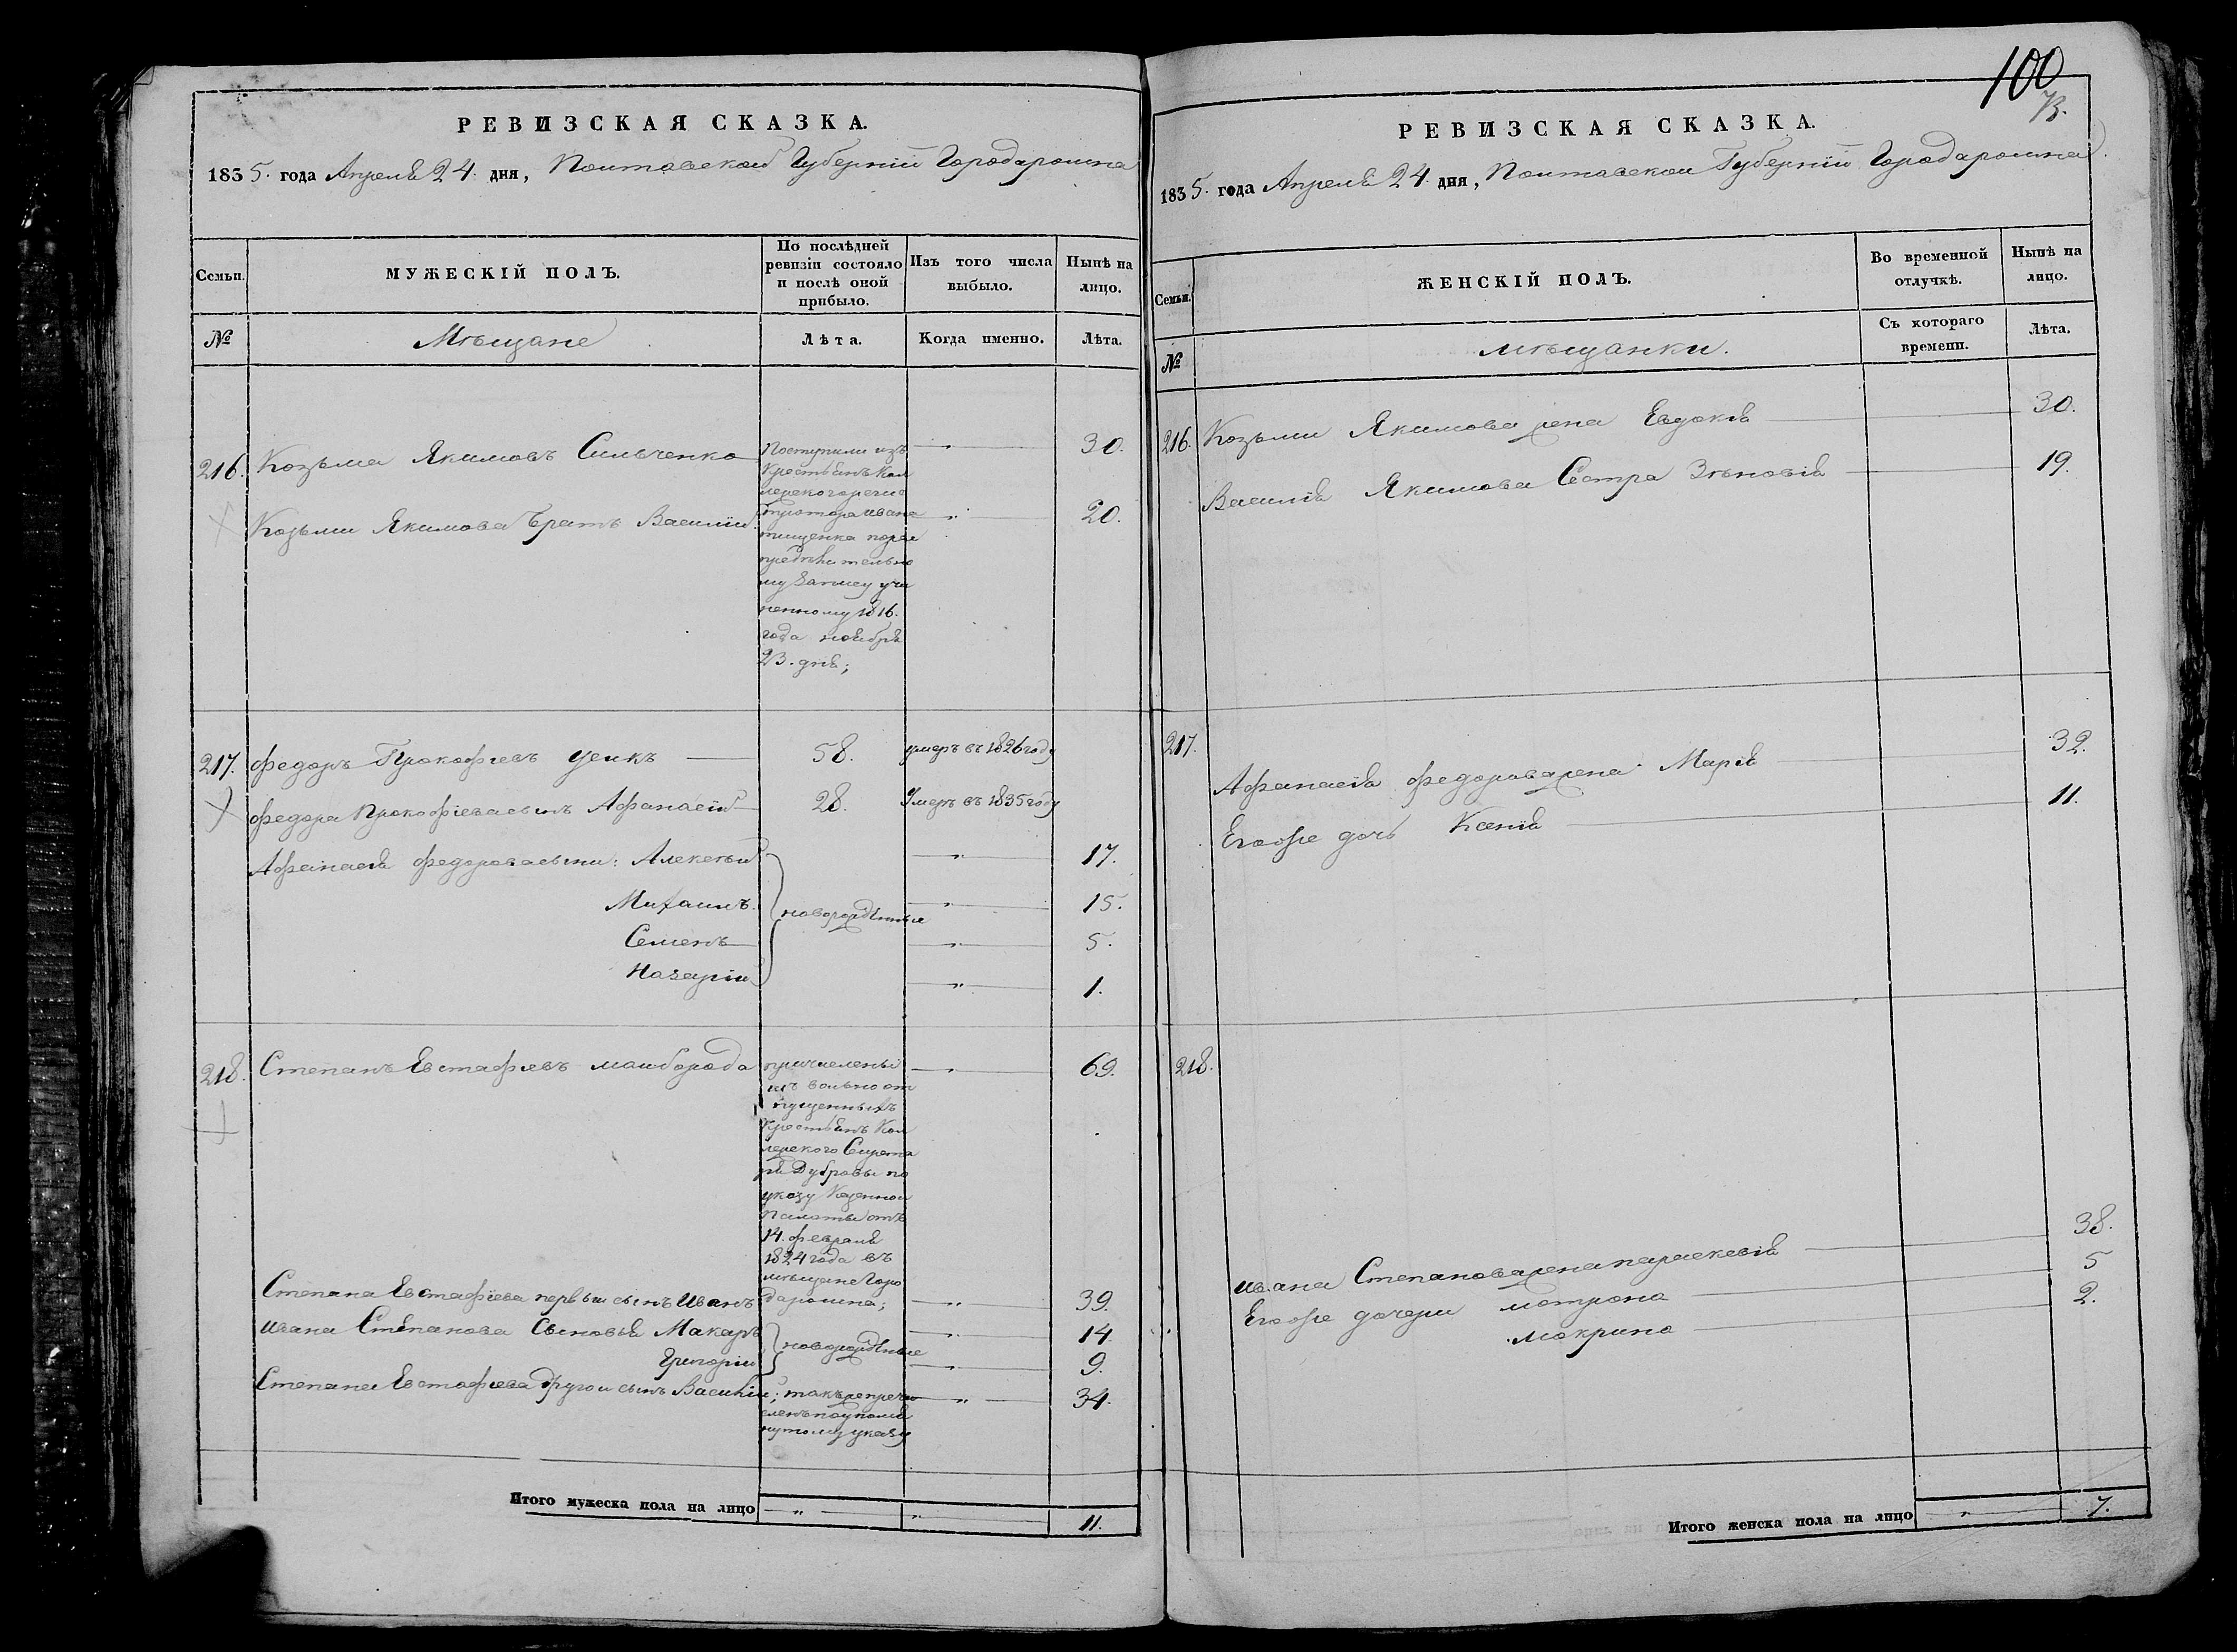 РЕВИЗСКАЯ СКАЗКА.
1835. года Апреля 24. дня, Полтавской Губерніи Города ромна
Семьи.
МУЖЕСКІЙ ПОЛЪ.
По послѣдней
ревизіи состояло
и послѣ оной
прибыло.
Изъ того числа
выбыло.
Нынѣ на
лицо.
№
Мѣщане
Лѣта.
Когда именно.
Лѣта.
216. Козьма Якимовъ Сильченко
30.
Козьми Якимова братъ Василій
20.
Поступили изъ
Крестьянъ Кол
лежского реги
стратора ивана
тищенка по
предѣлительно
му учи
ненному 1816.
года ноября
23. дня;
217. Федоръ Прокофіевъ Цеикъ
58.
умеръ въ 1826 году
Федора Прокофіева сынъ Афанасій
28.
Умеръ въ 1835 году
Афанасія Федорова сыни: Алексѣй
17.
Михаилъ.
15.
новорождѣнные
Семенъ
5.
Назарій
1.
218. Степанъ Евстафіевъ маиборода
69.
причислены
изъ вольноот
пущенныхъ
Крестьянъ Кол
лежского Секрета
ря Дубровы по
указу Казенной
Палаты отъ
14. февраля
1824 года въ
мѣщане Горо
да ромна;
Степана Евстафіева первыи сынъ Иванъ
39.
Ивана Степанова Сыновья Макаръ
14.
новорождѣные
Григорій
9.
Степана Евстафіева другои сынъ Василій;
34.
такъже причи
сленъ по упомя
нутому указу
Итого мужеска пола на лицо
11.
100
РЕВИЗСКАЯ СКАЗКА.
1835. года Апреля 24. дня, Полтавской Губерніи Города ромна
Семьи.
ЖЕНСКІЙ ПОЛЪ.
Во временной
отлучкѣ.
Нынѣ на
лицо.
№
мѣщанки.
Съ котораго
времени.
Лѣта.
216. Козьми Якимова жена Евдокія
30.
Василія Якимова Сестра Зѣновія
19.
217.
Афанасія Федорова жена Марія
32.
Егоже дочь Ксенія
11.
218.
Ивана Степанова жена параскевія
38.
Егоже дочери мотрона
5
макрина
2.
Итого женска пола на лицо
7.